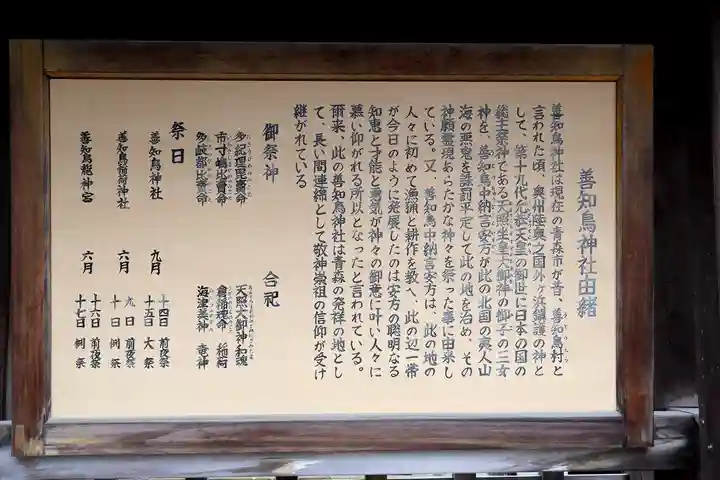 善知鳥神社由緒
善知鳥神社は現在の青森市が昔、善知鳥村と
言われた頃、奥州陸奥之国外ヶ浜鎮護の神と
して、第十九代允恭天皇の御世に日本の国の
総主祭神である天照坐皇大御神の御子の三女
神を、善知鳥中納言安方が此の北国の夷人山
海の悪鬼を誅罰平定して此の地を治め、その
神願霊現あらたかな神々を祭った事に由来し
ている。又、善知鳥中納言安方は、此の地の
人々に初めて漁猟と耕作を教へ、此の辺一帯
が今日のように発展したのは安方の聡明なる
知恵と才能と勇気が神々の御意に叶い人々に
慕い仰がれる所以となったと言われている。
爾来、此の善知鳥神社は青森の発祥の地とし
て、長い間連綿として敬神崇祖の信仰が受け
継がれている
御祭神 合祀
多紀理毘賣命 天照大御神和魂
市寸嶋比賣命 倉稲魂命 稲荷
多岐都比賣命 海津美神 竜神
祭日
善知鳥神社 九月 十四日 前夜祭
十五日 大祭
善知鳥稲荷神社 六月 九日 前夜祭
十日 例祭
善知鳥龍神宮 六月 十六日 前夜祭
十七日 例祭